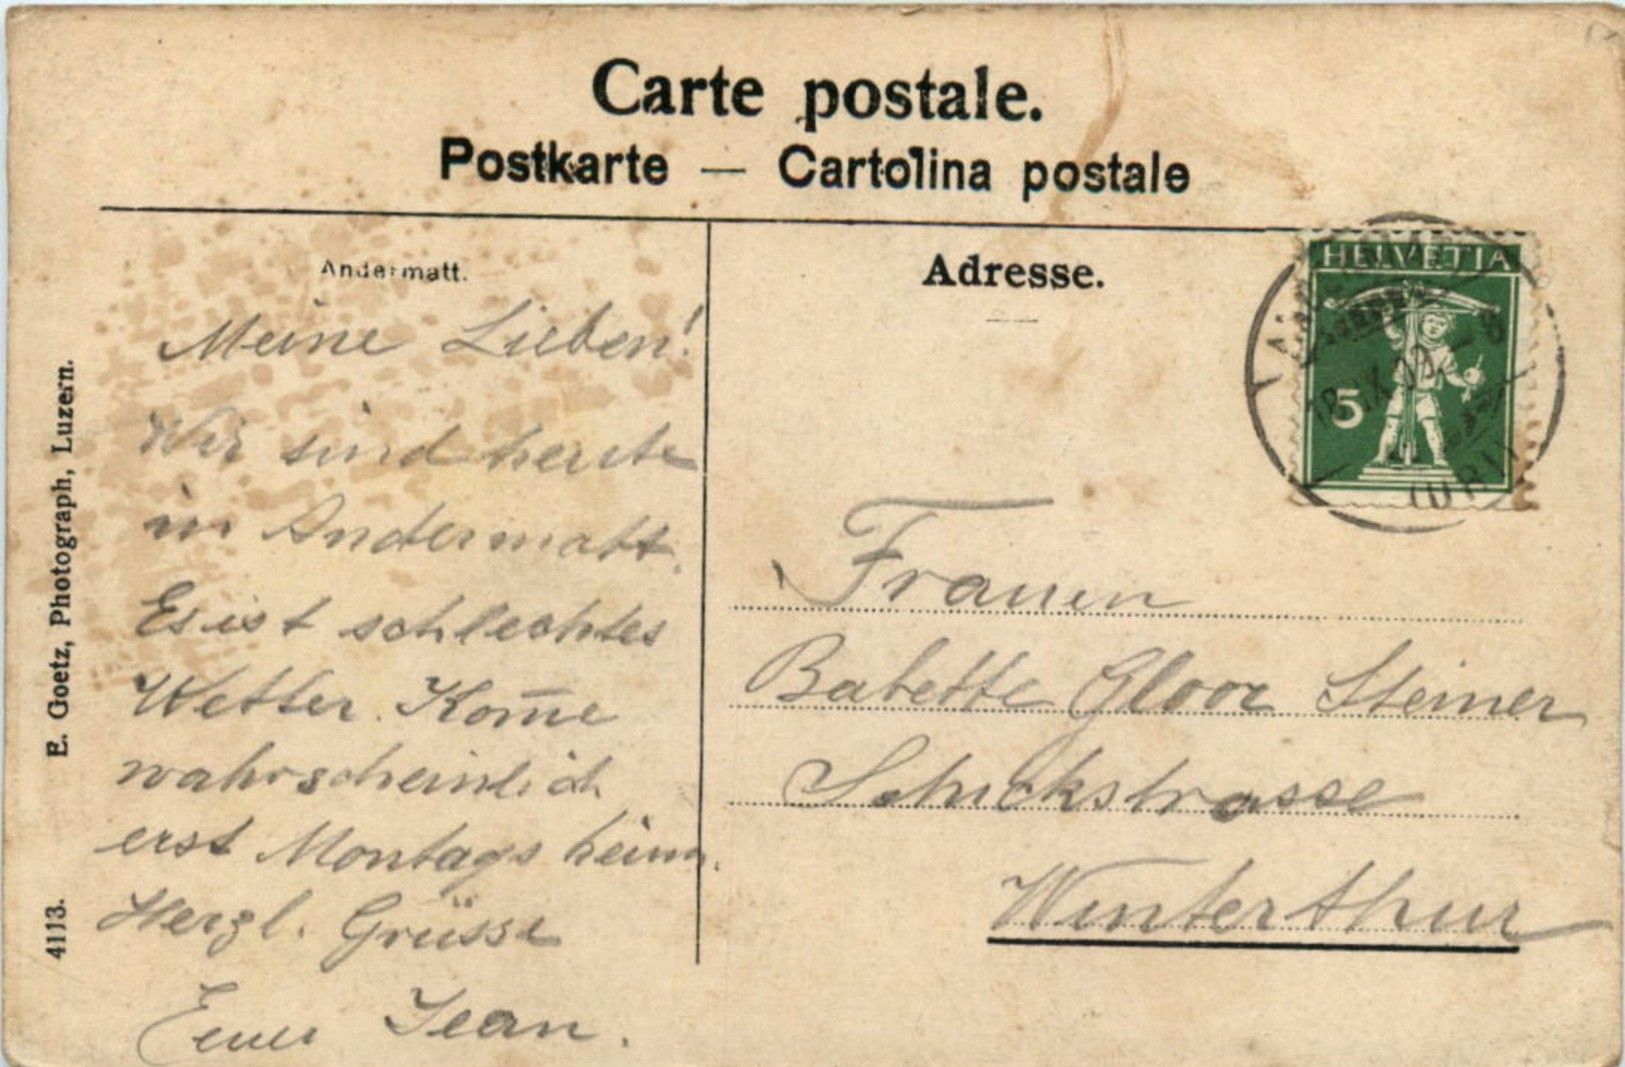 Carte postale.
Postkarte — Cartolina postale
Andermatt.
Meine Lieben!
Wir sind heute
in Andermatt.
Es ist schlechtes
Wetter. Kom̅e
wahrscheinlich
erst Montags heim.
Herzl. Grüsse
Euer Jean.
E. Goetz, Photograph, Luzern.
4113.
Adresse.
HELVETIA
5
18.IX.09.-8
(URI)
Frauen
Babette Gloor Steiner
Schickstrasse
Winterthur